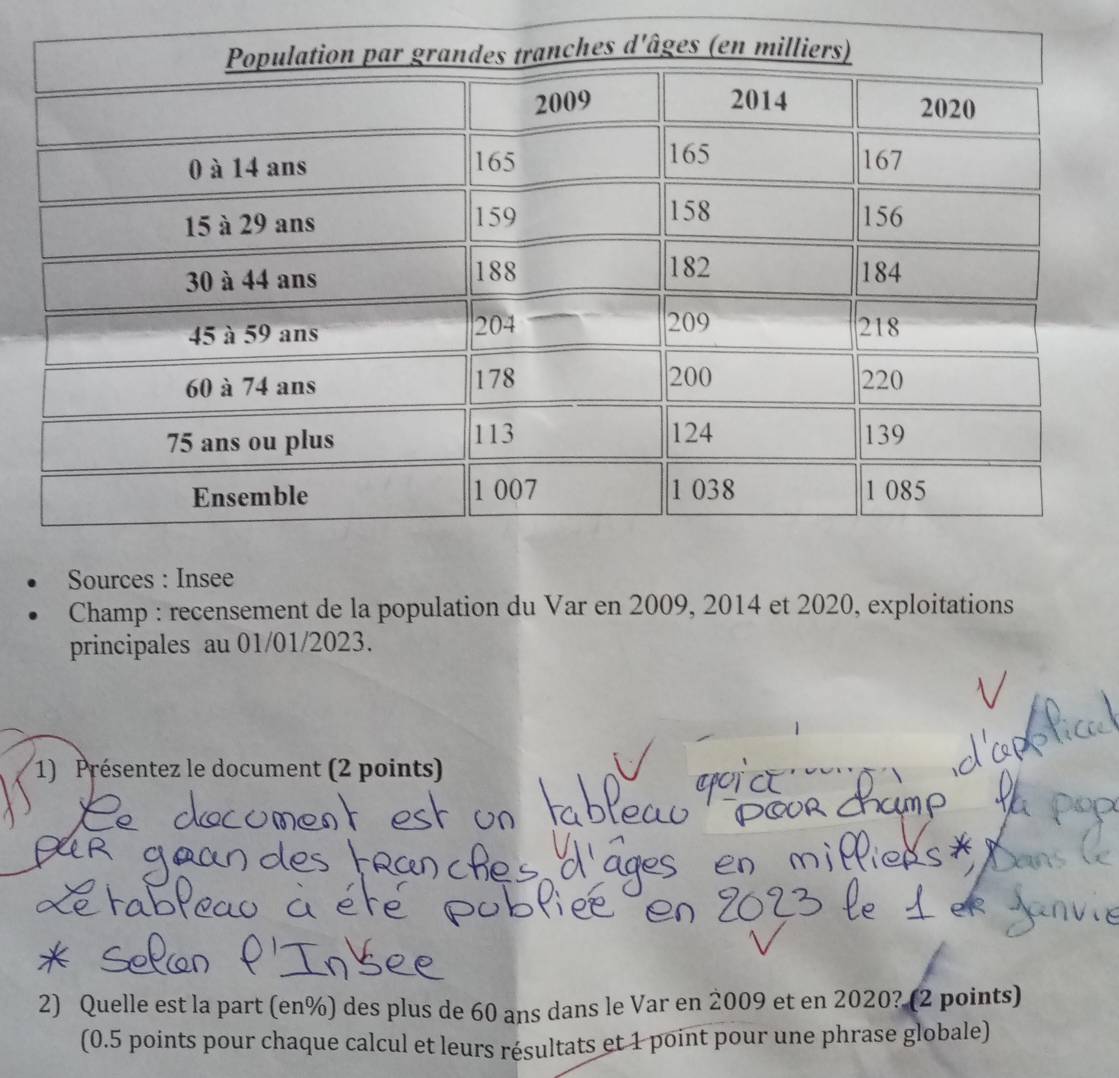 Population par grandes tranches d'âges (en milliers)
2009 2014 2020
0 à 14 ans 165 165 167
15 à 29 ans 159 158 156
30 à 44 ans 188 182 184
45 à 59 ans 204 209 218
60 à 74 ans 178 200 220
75 ans ou plus 113 124 139
Ensemble 1 007 1 038 1 085
• Sources : Insee
• Champ : recensement de la population du Var en 2009, 2014 et 2020, exploitations
principales au 01/01/2023.
1) Présentez le document (2 points)
d'applicat
Le document est un tableau qui a pour champ la pop
par grandes tranches d'âges en milliers*, Dans le
Le tableau à été publiée en 2023 le 1 er Janvie
* Selon l'Insee
2) Quelle est la part (en%) des plus de 60 ans dans le Var en 2009 et en 2020? (2 points)
(0.5 points pour chaque calcul et leurs résultats et 1 point pour une phrase globale)